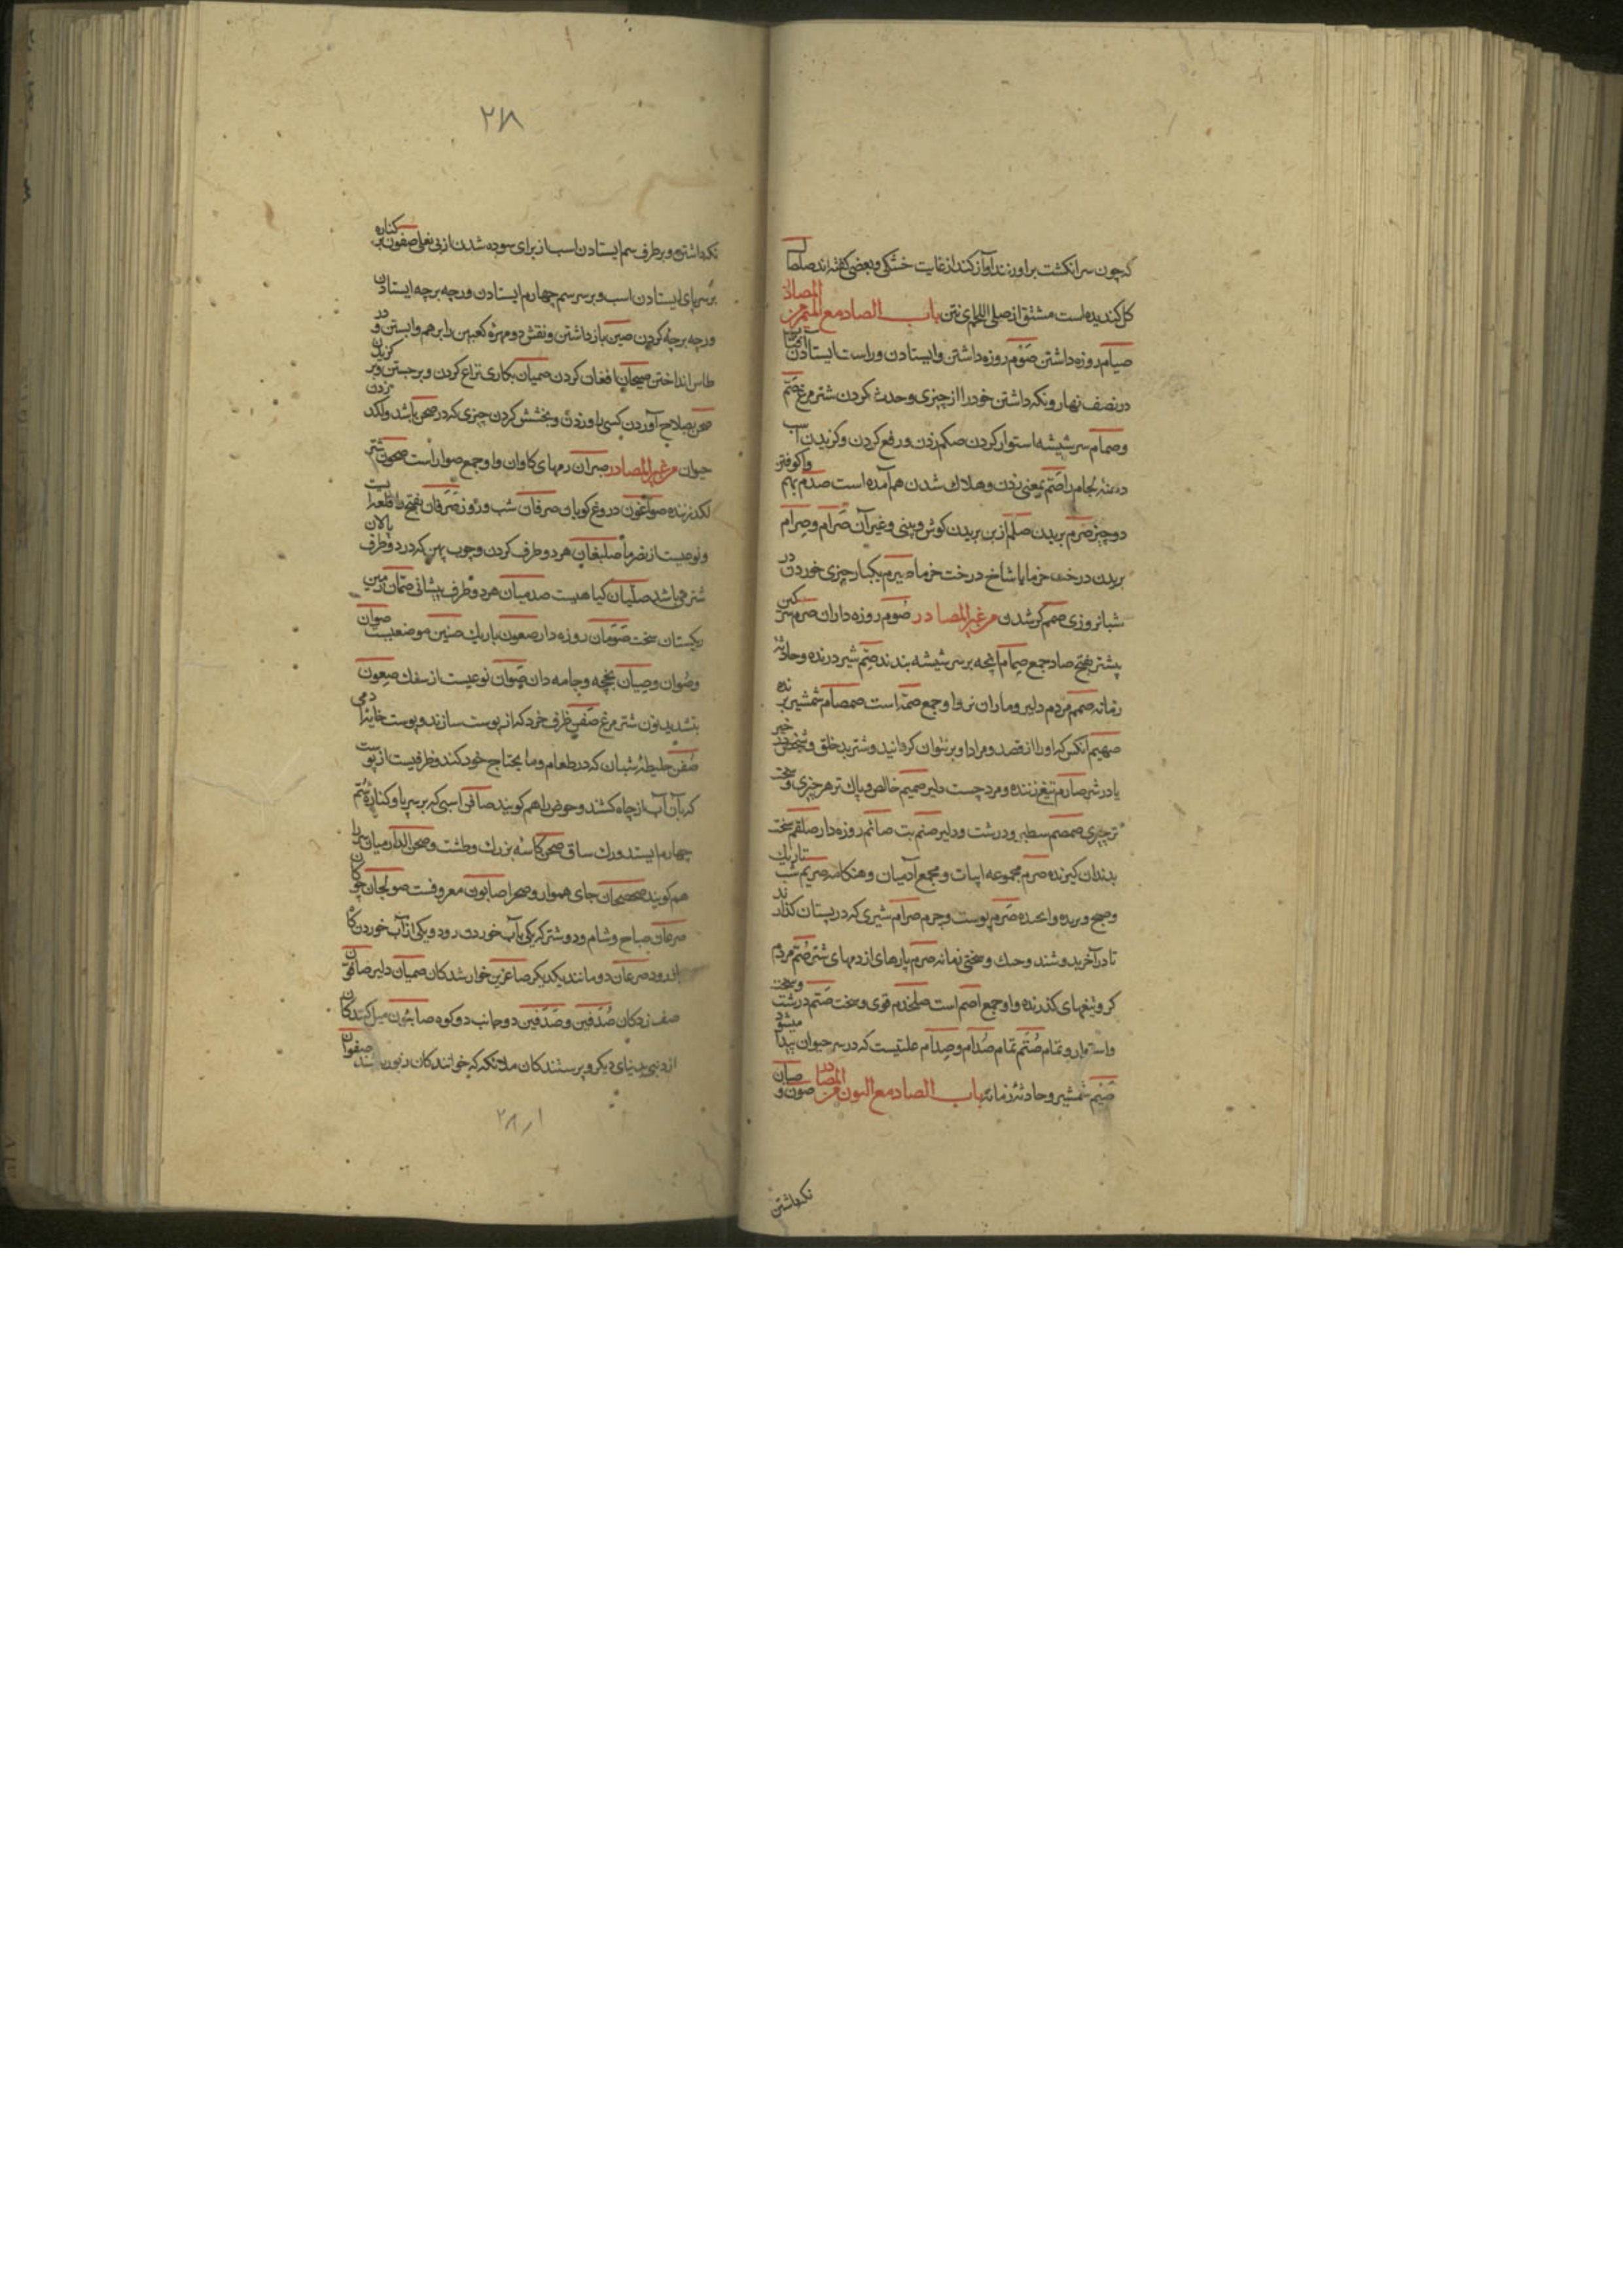 که چون سر انکشت بر او زنند آواز کند از غایت خشکی و بعضی کفته اند صلصال
کل کندیده است مشتق از صلی اللحم ای نتن باب الصاد مع المیم من المصادر
صیام روزه داشتن صَوْم روزه داشتن و ایستادن و راست ایستادن آفتاب
در نصف نهار و نکه داشتن خود را از چیزی و حدث کردن شتر مرغ صَتم
و صمام سر شیشه استوار کردن صکم زدن و رفع کردن و کزیدن اسب
دهنه لجام را صَتم بمعنی زدن و هلاک شدن هم آمده است صدم بهم واکوفتن
دو چیز صَرم بریدن صلم از بن بریدن کوش و بینی و غیر آن صَرام و صِرام
بریدن درخت خرما یا شاخ درخت خرما صیرم یکبار چیزی خوردن در
شبانروزی صمم کر شدن من غیر المصادر صُوم روزه داران صرم سر سکین
پیشتر بفتح صاد جمع صِمام انچه بر سر شیشه بندند صِتم شیر درنده و حادثه
زمانه صمم مردم دلیر و ماران نر و او جمع صمّه است صمصام شمشیر برنده
صهیم آنکس که او را از قصد و مراد او بر نتوان کردانید و شتر بد خلق و شخص در خیر
یا در شر صارم تیغ زننده و مرد چست دلیر صمیم خالص و پاک تر هر چیزی و سخت
تر چیزی صمصم سطبر و درشت و دلیر صنم بت صائم روزه دار صلقم سخت
بدندان کیرنده صرم مجموعه ابیات و مجمع آدمیان و هنکامه صریم شب تاریک
و صبح و بریده و اعحده صَرم پوست و چرم صرام شیری که در پستان کذارند
تا در آخر بدوشند و حنك و سختی زمانه صرم پارهای از دمهای شتر صُتم مردم
کر و تیغهای کذرنده و او جمع اصم است صلخدم قوی و سخت صَتم درشت و سخت
و استوار و تمام صُتَم تمام صُدام و صِدام علتیست که در سر حیوان پیدا میشود
صَنِم شمشیر و حادثۀ زمانه باب الصاد مع النون من المصادر صون و صیان
نکهداشتن
۲۸۱
نکهداشتن و بر طرف سم ایستادن اسب از برای سوده شدن از بی نعلی صفون بر کناره
بر سر پای ایستادن اسب و بر سر سم چهارم ایستادن ورجه برجه ایستادن
ورجه برجه کردن صبن باز داشتن و نقش دو مهره کعبین را برهم وابستن و در
طاس انداختن صیحان افغان کردن صمیان بکاری نزاع کردن و برجستن و بر کزیدن
صحن بصلاح آوردن کسی با و زدن و بخشش کردن چیزی که در صحن باشد و لکد زدن
حیوان من غیر المصادر صیران رمهای کاوان و او جمع صوار است صحون شتر
لکد زننده صواغون دروغ کویان صرفان شب و روز صَرَفان بفتح را قلعیست
و نوعیست از خرما صلبغان هر دو طرف کردن و چوب پهن که در دو طرف پالان
شتر می باشد صلّیان کیاهیست صدمیان هر دو طرف پیشانی صمّان زمین
ریکستان سخت صَوَمان روزه دار صعون باریك صنین موضعیست صوان
و صُوان و صِیان بخچه و جامه دان صَوّان نوعیست از سنك صِعون
بتشدید نون شتر مرغ صَفَن ظرفی خرد که از پوست سازند و پوست خایهٔ آدمی
صُفن خلیطهٔ شبان که در طعام و ما یحتاج خود کند و ظرفیست از پوست
که بآن آب از چاه کشند و حوض را هم کویند صافن اسبی که بر سر پا و کناره سم
چهارم ایستد و رك ساق صحن کاسه بزرك و طشت و صحن الدار میان سرا
هم کویند صحصحان جای هموار و صحرا صابون معروفست صولجان چوکان
صرعان صباح و شام و دو شتر که یکی بآب خوردن رود و یکی از آب خوردن کاه
اندرود صرعان دو مانند یکدیکر صاغرین خوار شدکان صمیان دلیر صافون
صف زدکان صُدُفین و صَدَفین دو جانب دو کوه صابئون میل کنندکان
از دینی بدینای دیکر و پرستندکان ملائکه که خوانندکان زبورند صفوان
۲۸۱